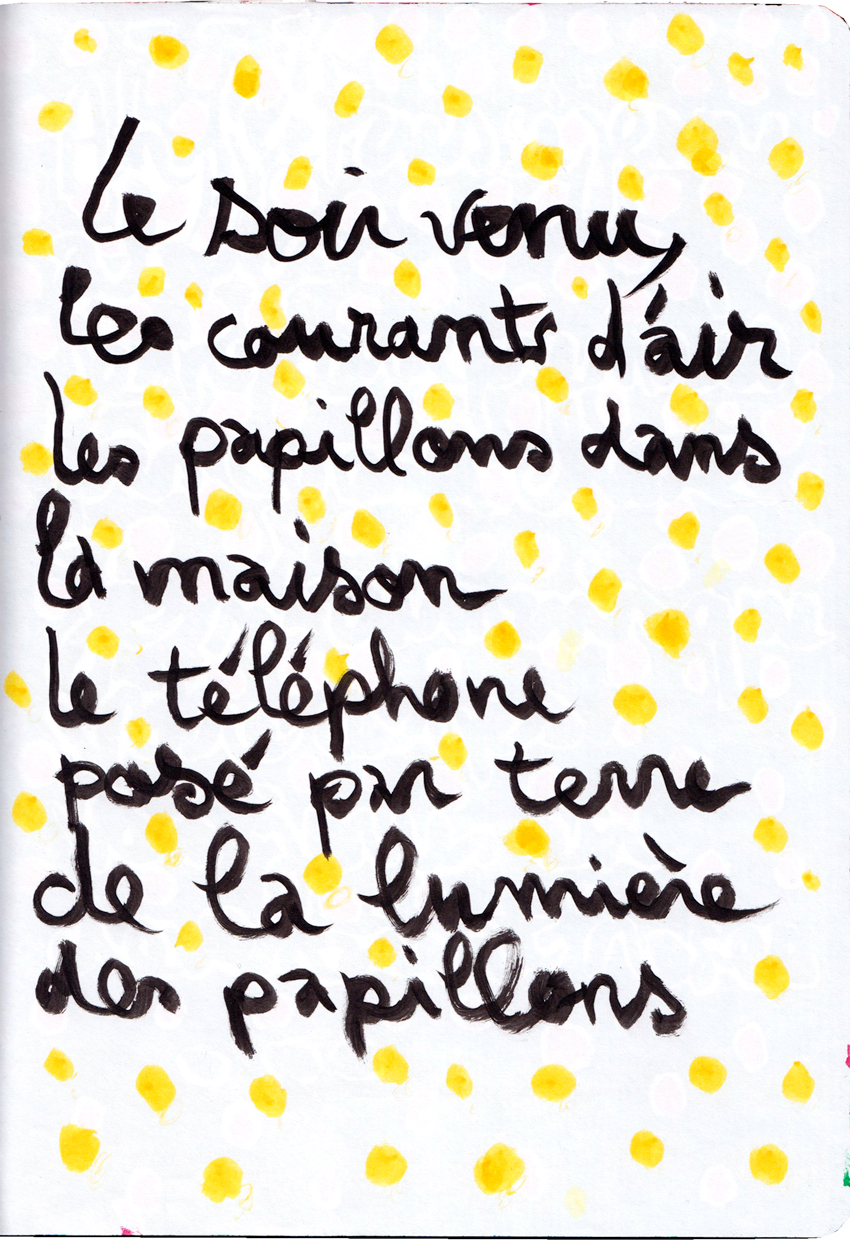 Le soir venu,
les courants d'air
les papillons dans
la maison
le téléphone
posé par terre
de la lumière
des papillons